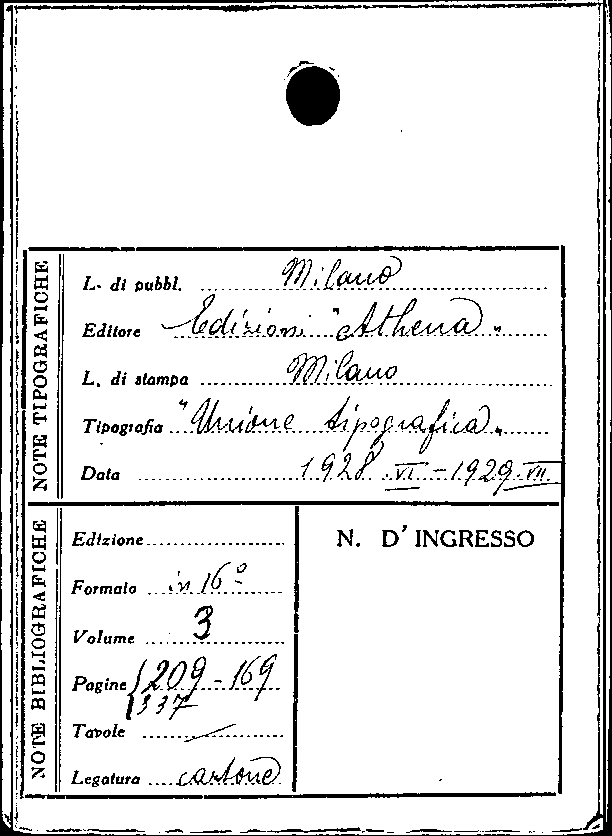 NOTE TIPOGRAFICHE
L. di pubbl. Milano
Editore Edizioni "Athena"
L. di stampa Milano
Tipografia "Unione tipografica"
Data 1928.VI - 1929.VII.
NOTE BIBLIOGRAFICHE
Edizione
Formato in 16°
Volume 3
Pagine 209 - 169
337
Tavole /
Legatura cartone
N. D'INGRESSO